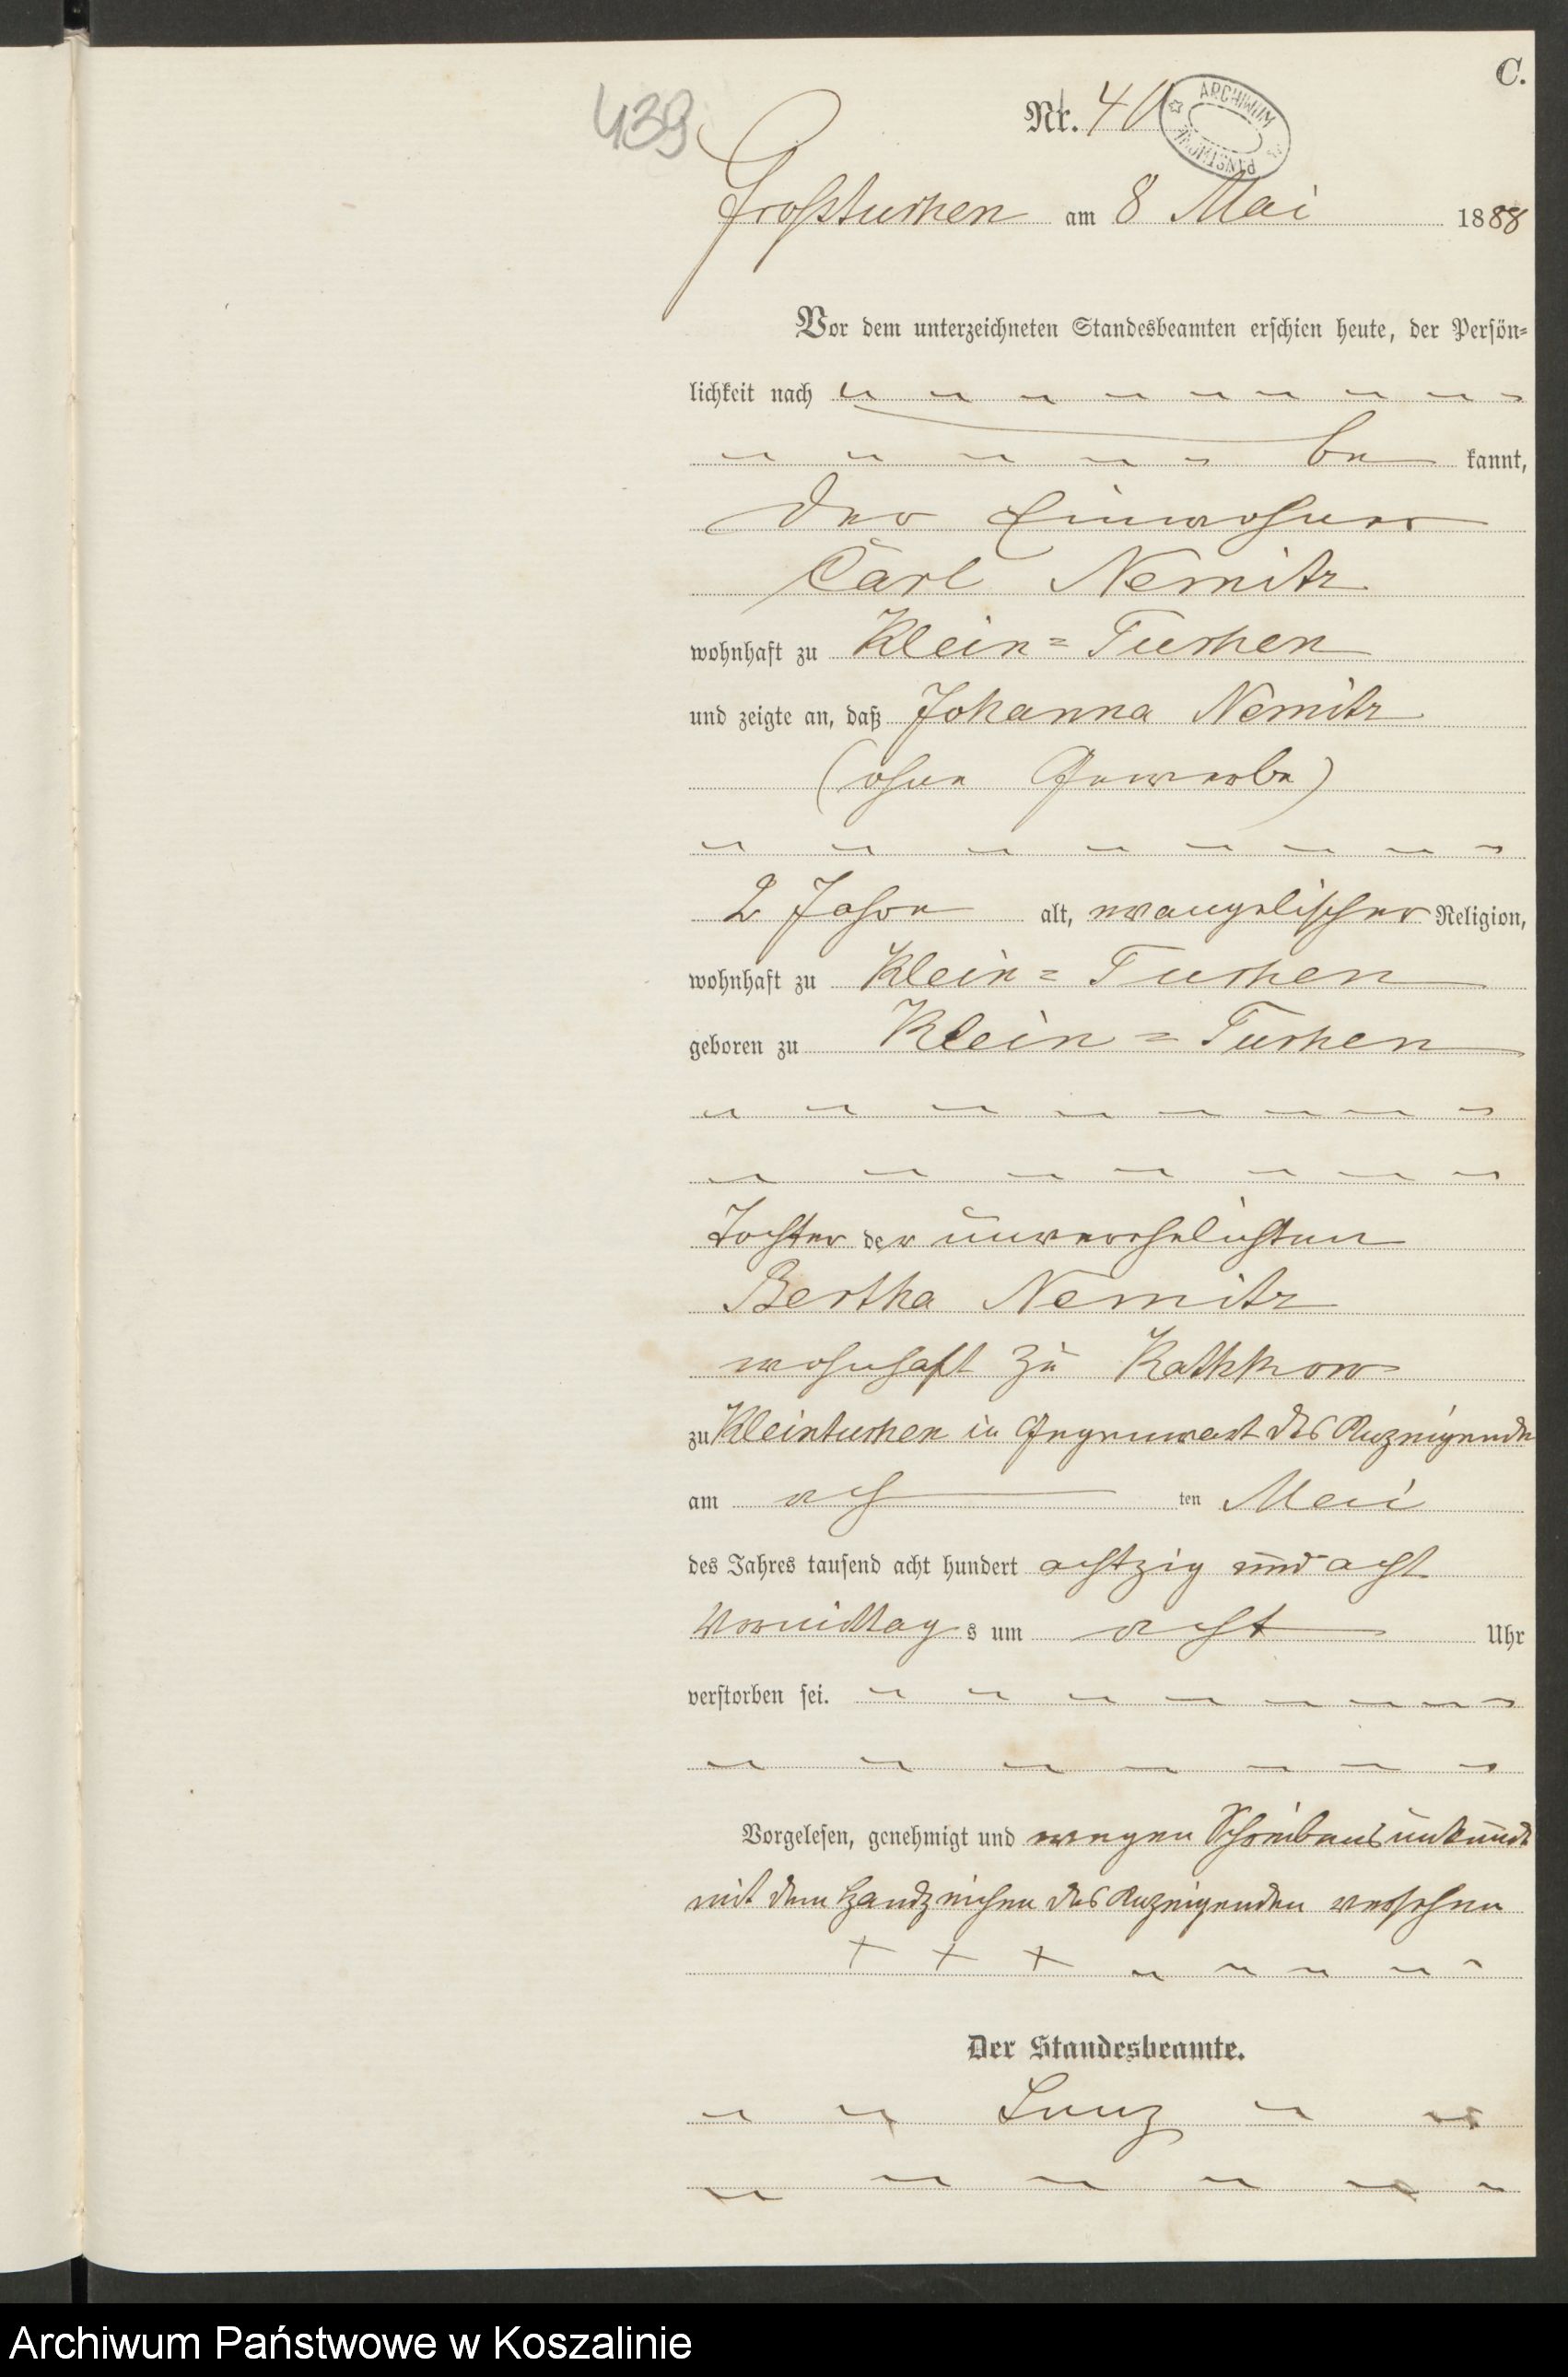 C.
439
Nr. 40
ARCHIWUM PAŃSTWOWE
Großtuchen am 8 Mai 1888
Vor dem unterzeichneten Standesbeamten erschien heute, der Persön-
lichkeit nach
be kannt,
der Einwohner
Carl Nemitz
wohnhaft zu Klein=Tuchen
und zeigte an, daß Johanna Nemitz
(ohne Gewerbe)
2 Jahre alt, evangelischer Religion,
wohnhaft zu Klein=Tuchen
geboren zu Klein=Tuchen
Tochter der unverehelichten
Bertha Nemitz
wohnhaft zu Kathkow
zu Kleintuchen in Gegenwart des Anzeigenden
am ach ten Mai
des Jahres tausend acht hundert achtzig und acht
Vormittag s um acht Uhr
verstorben sei.
Vorgelesen, genehmigt und wegen Schreibensunkunde
mit dem Handzeichen des Anzeigenden versehen
+ + +
Der Standesbeamte.
Archiwum Państwowe w Koszalinie